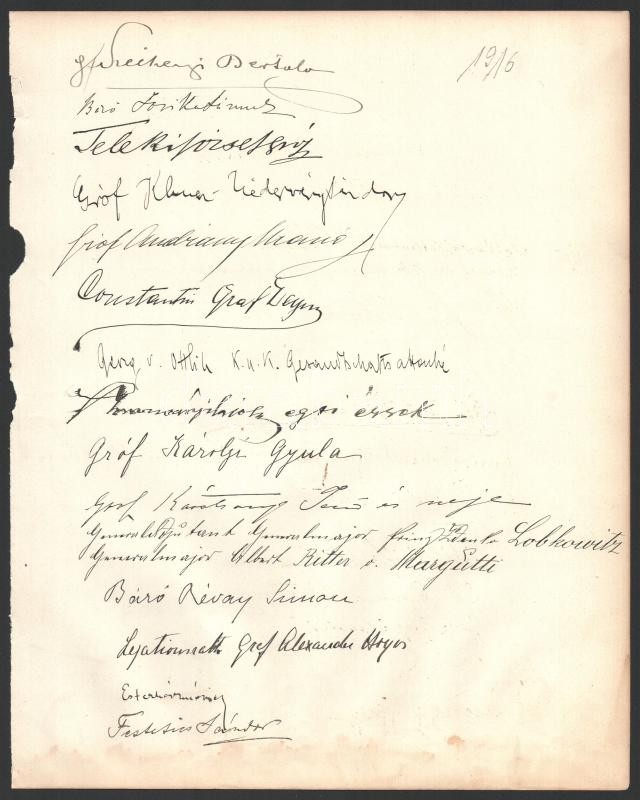 gf Széchenyi Bertalan
1916
Báró
Teleki József gróf
Gróf Khuen-Héderváry Sándor
Gróf Andrássy Manó
Constantin Graf
Georg v. Ottlik K. u. K. Gesandtschaftsattaché
egri érsek
Gróf Károlyi Gyula
Gróf Karátsonyi Jenő és neje
Generaladjutant Generalmajor Prinz Zdenko Lobkowitz
Generalmajor Albert Ritter v. Margutti
Báró Révay Simon
Legationsrath Graf Alexander Hoyos
Festetics Sándor